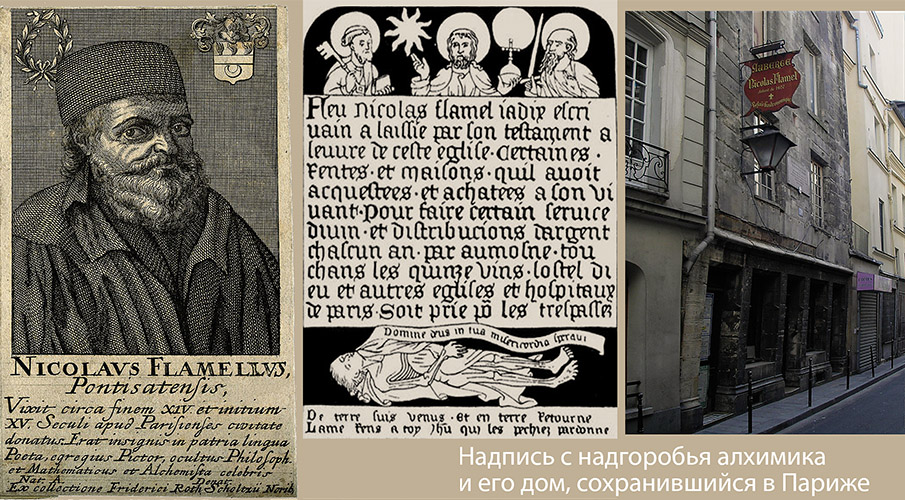 NICOLAVS FLAMELLVS,
Pontisatensis,
Vixit circa finem XIV. et initium
XV. Seculi apud Parisienses civitate
donatus. Erat insignis in patria lingua
Poeta, egregius Pictor, ocultus Philosoph.
et Mathematicus et Alchemista celebris
Nat. A. Denat.
Ex collectione Friderici Roth Scholtzii Norib.
Feu nicolas flamel iadix escri
uain a laissie par son testament a
leuure de ceste eglise. Certaines.
Rentes. et maisons. quil auoit
acquestees. et achatées a son vi
uant. Pour faire certain seruice
diuin. et distribucions dargent
chascun an. par aumosne. tou
chans les quinze vins. lostel di
eu et autres eglises et hospitaux
de paris. Soit prie po les trespassez
Domine deus in tua misericordia speravi
De terre suis venus. Et en terre Retourne
Lame Rens a toy Jhu qui les pechiez pardonne
AUBERGE
Nicolas Flamel
Надпись с надгоробья алхимика
и его дом, сохранившийся в Париже